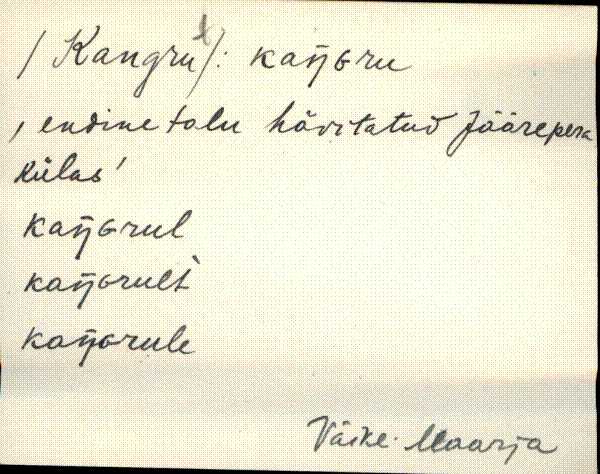 /Kangru/: kaŋɢru
, endine talu hävitatud Jäärepera
külas'
kaŋɢrul
kaŋɢrult
kaŋɢrule
Väike-Maarja